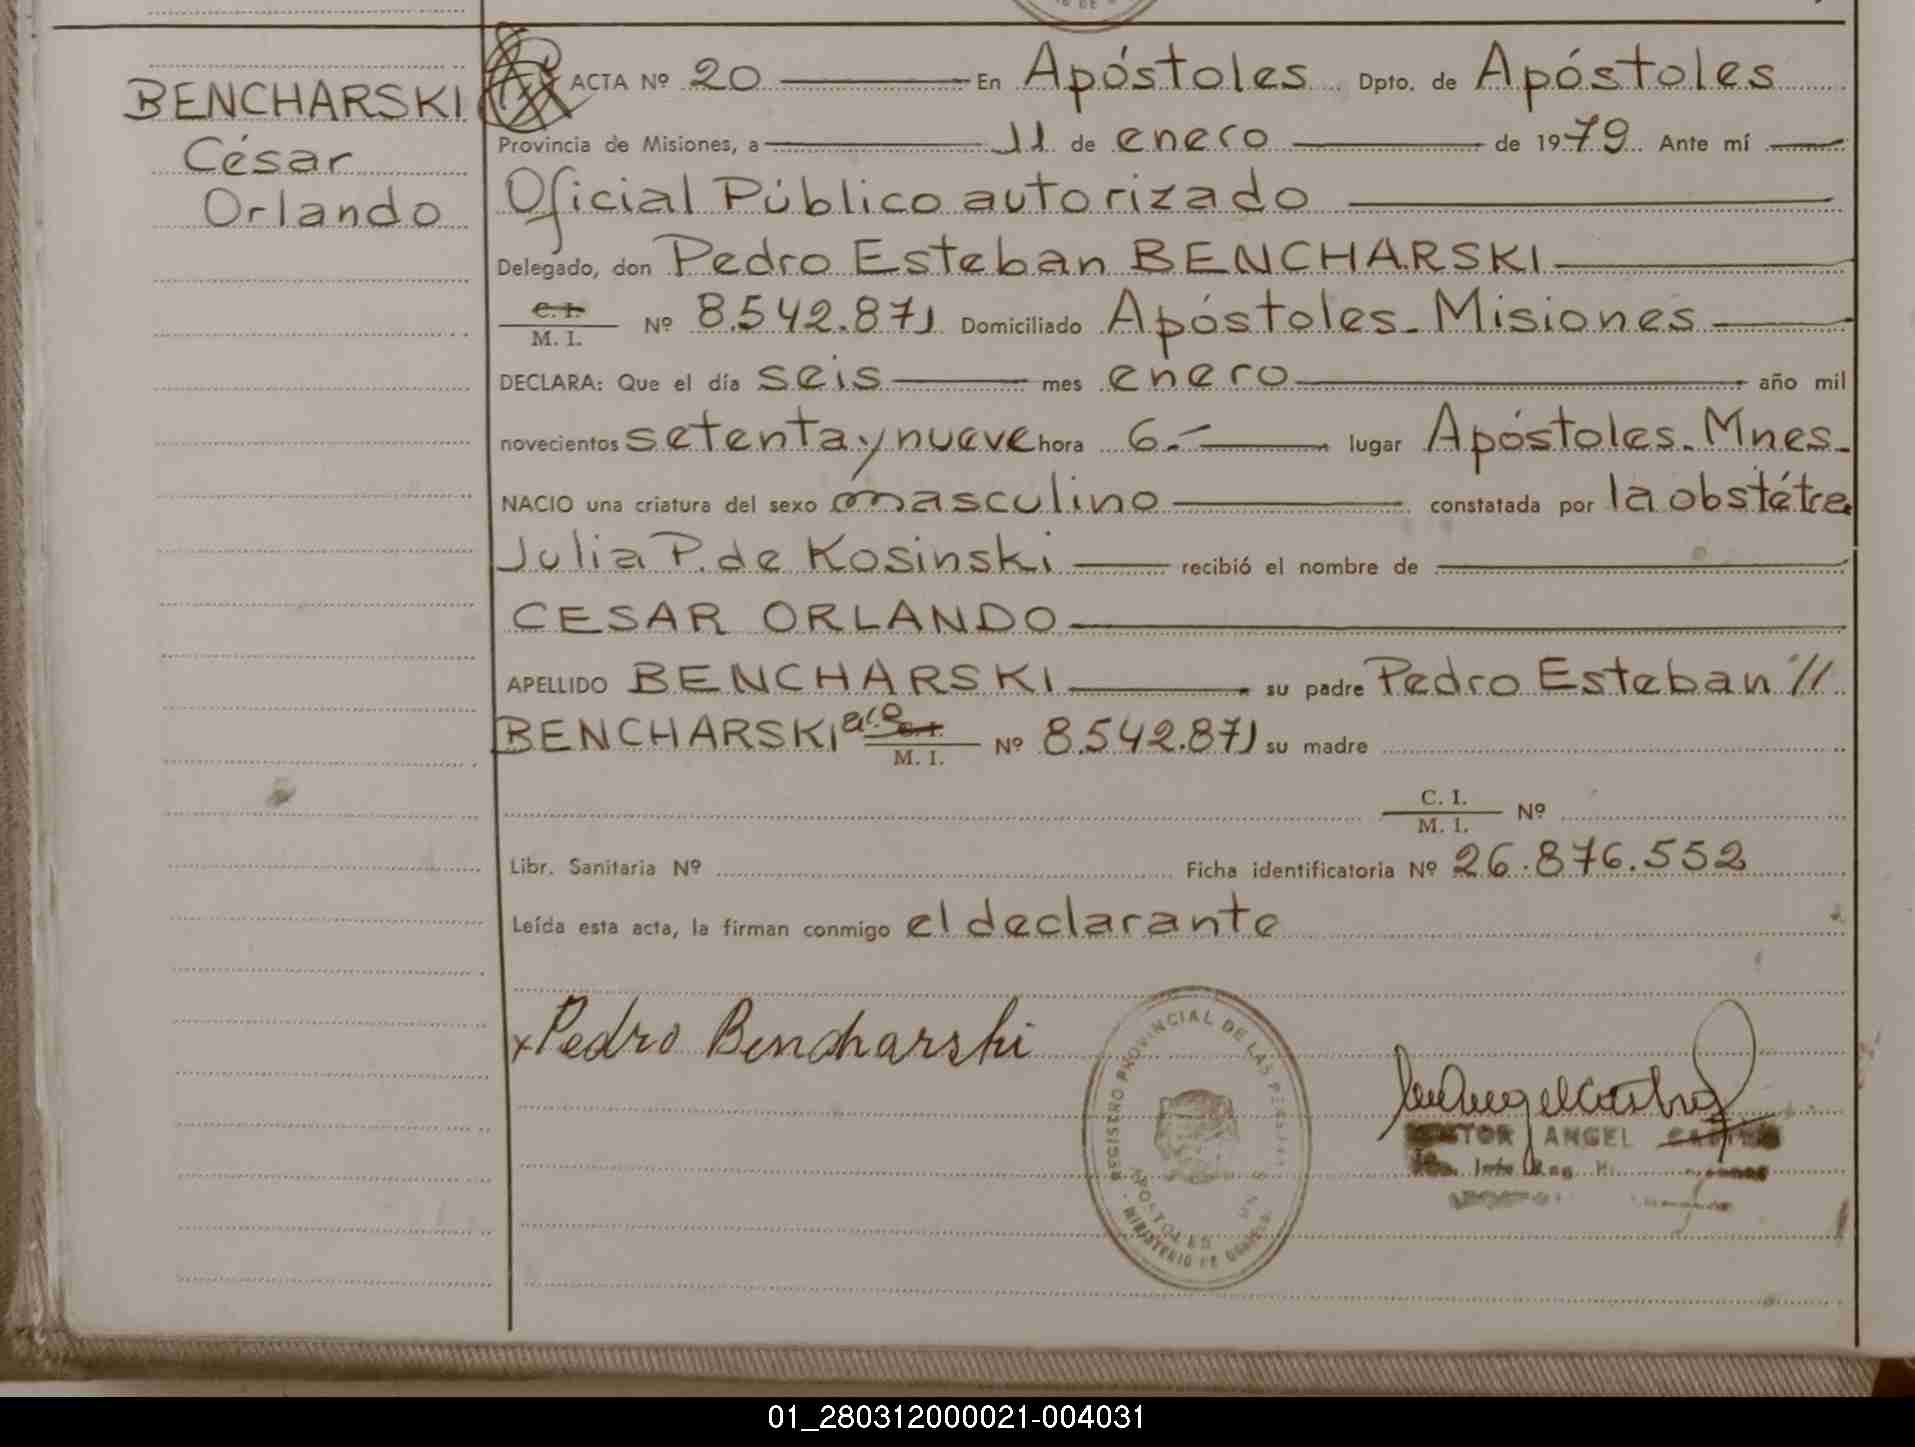 BENCHARSKI
César
Orlando
ACTA Nº 20 En Apóstoles Dpto. de Apóstoles
Provincia de Misiones, a 11 de enero de 1979. Ante mí
Oficial Público autorizado
Delegado, don Pedro Esteban BENCHARSKI
C. I.
M. I. Nº 8.542.871 Domiciliado Apóstoles. Misiones
DECLARA: Que el día seis mes enero año mil
novecientos setenta y nueve hora 6.- lugar Apóstoles. Mnes.
NACIO una criatura del sexo masculino constatada por la obstétra
Julia P. de Kosinski recibió el nombre de
CESAR ORLANDO
APELLIDO BENCHARSKI su padre Pedro Esteban //
BENCHARSKI C. I.
M. I. Nº 8.542.871 su madre
C. I.
M. I. Nº
Libr. Sanitaria Nº Ficha identificatoria Nº 26.876.552
Leída esta acta, la firman conmigo el declarante
x Pedro Bencharski
REGISTRO PROVINCIAL DE LAS
APOSTOLES
MINISTERIO DE
ANGEL
01_280312000021-004031